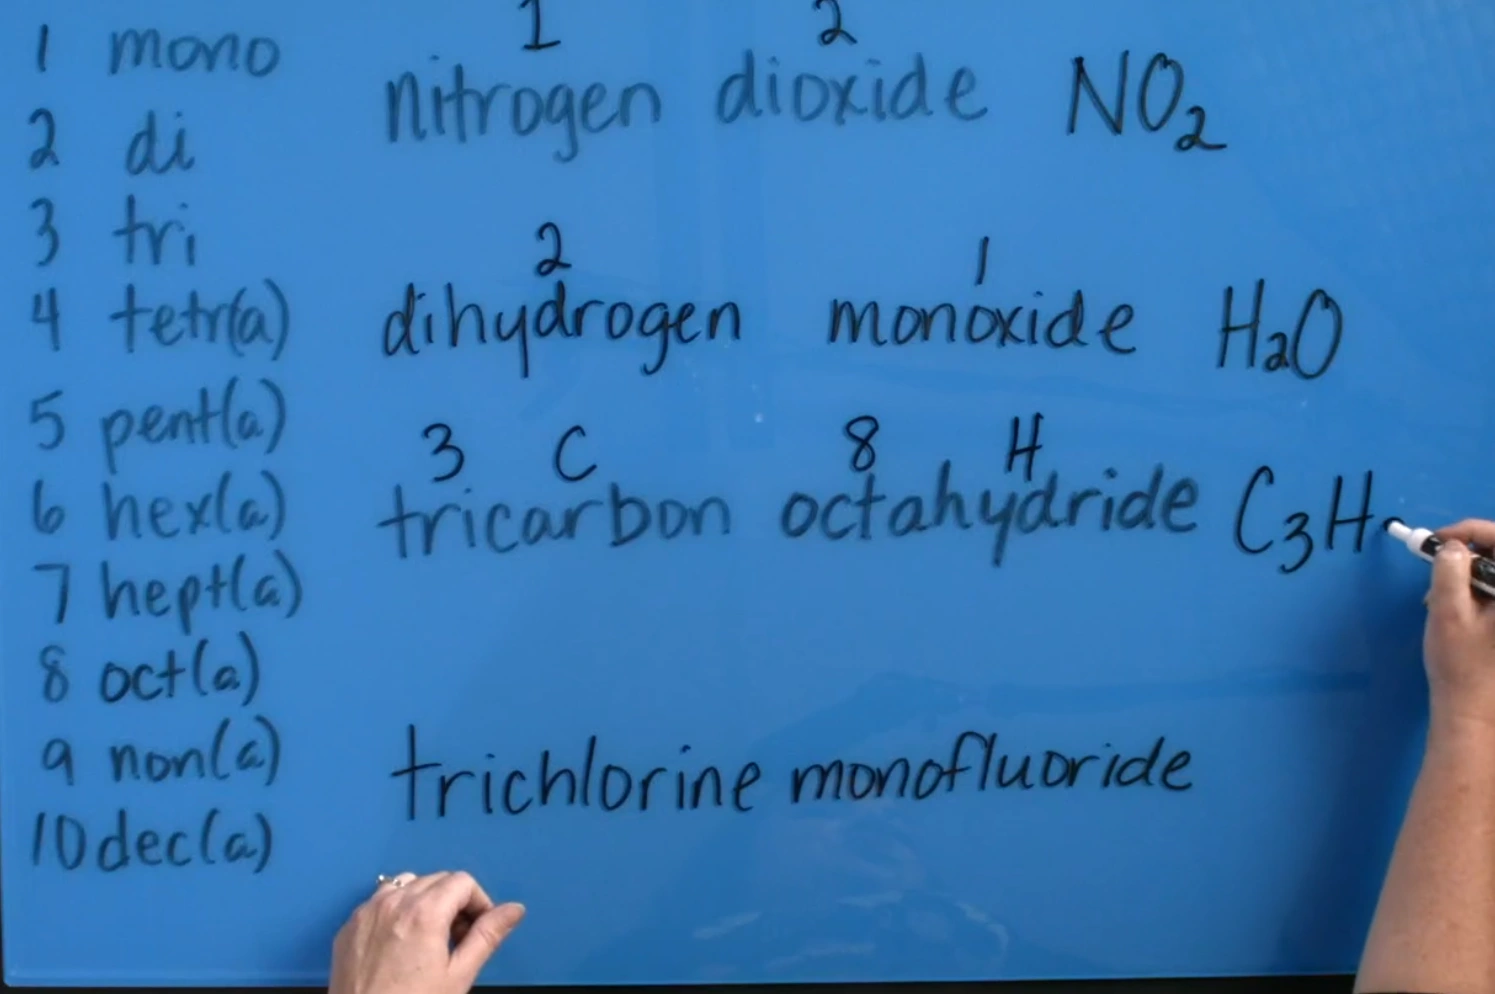 1 mono
2 di
3 tri
4 tetr(a)
5 pent(a)
6 hex(a)
7 hept(a)
8 oct(a)
9 non(a)
10 dec(a)
1 2
nitrogen dioxide NO₂
2 1
dihydrogen monoxide H₂O
3 C 8 H
tricarbon octahydride C₃H
trichlorine monofluoride